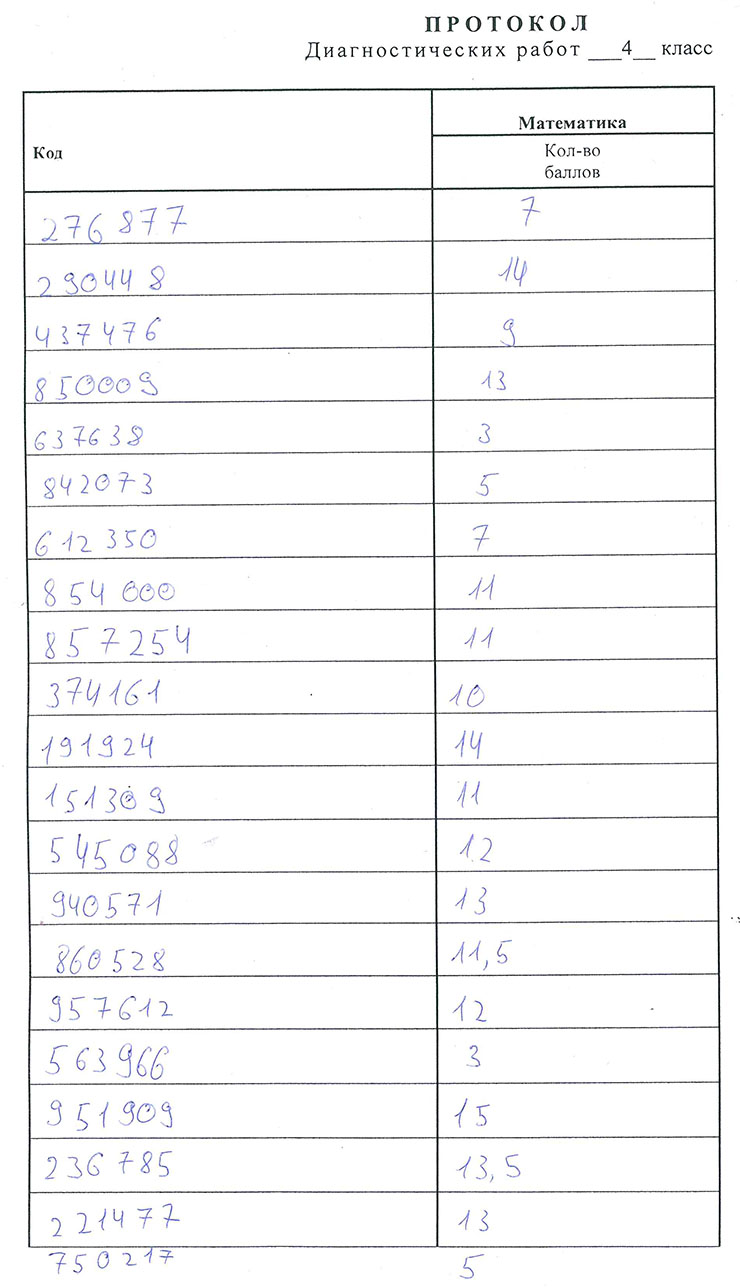 ПРОТОКОЛ
Диагностических работ ___4__ класс
Код
Математика
Кол-во
баллов
276877 7
290448 14
437476 9
850009 13
637638 3
842073 5
612350 7
854000 11
857254 11
374161 10
191924 14
151309 11
545088 12
940571 13
860528 11,5
957612 12
563966 3
951909 15
236785 13,5
221477 13
750217 5